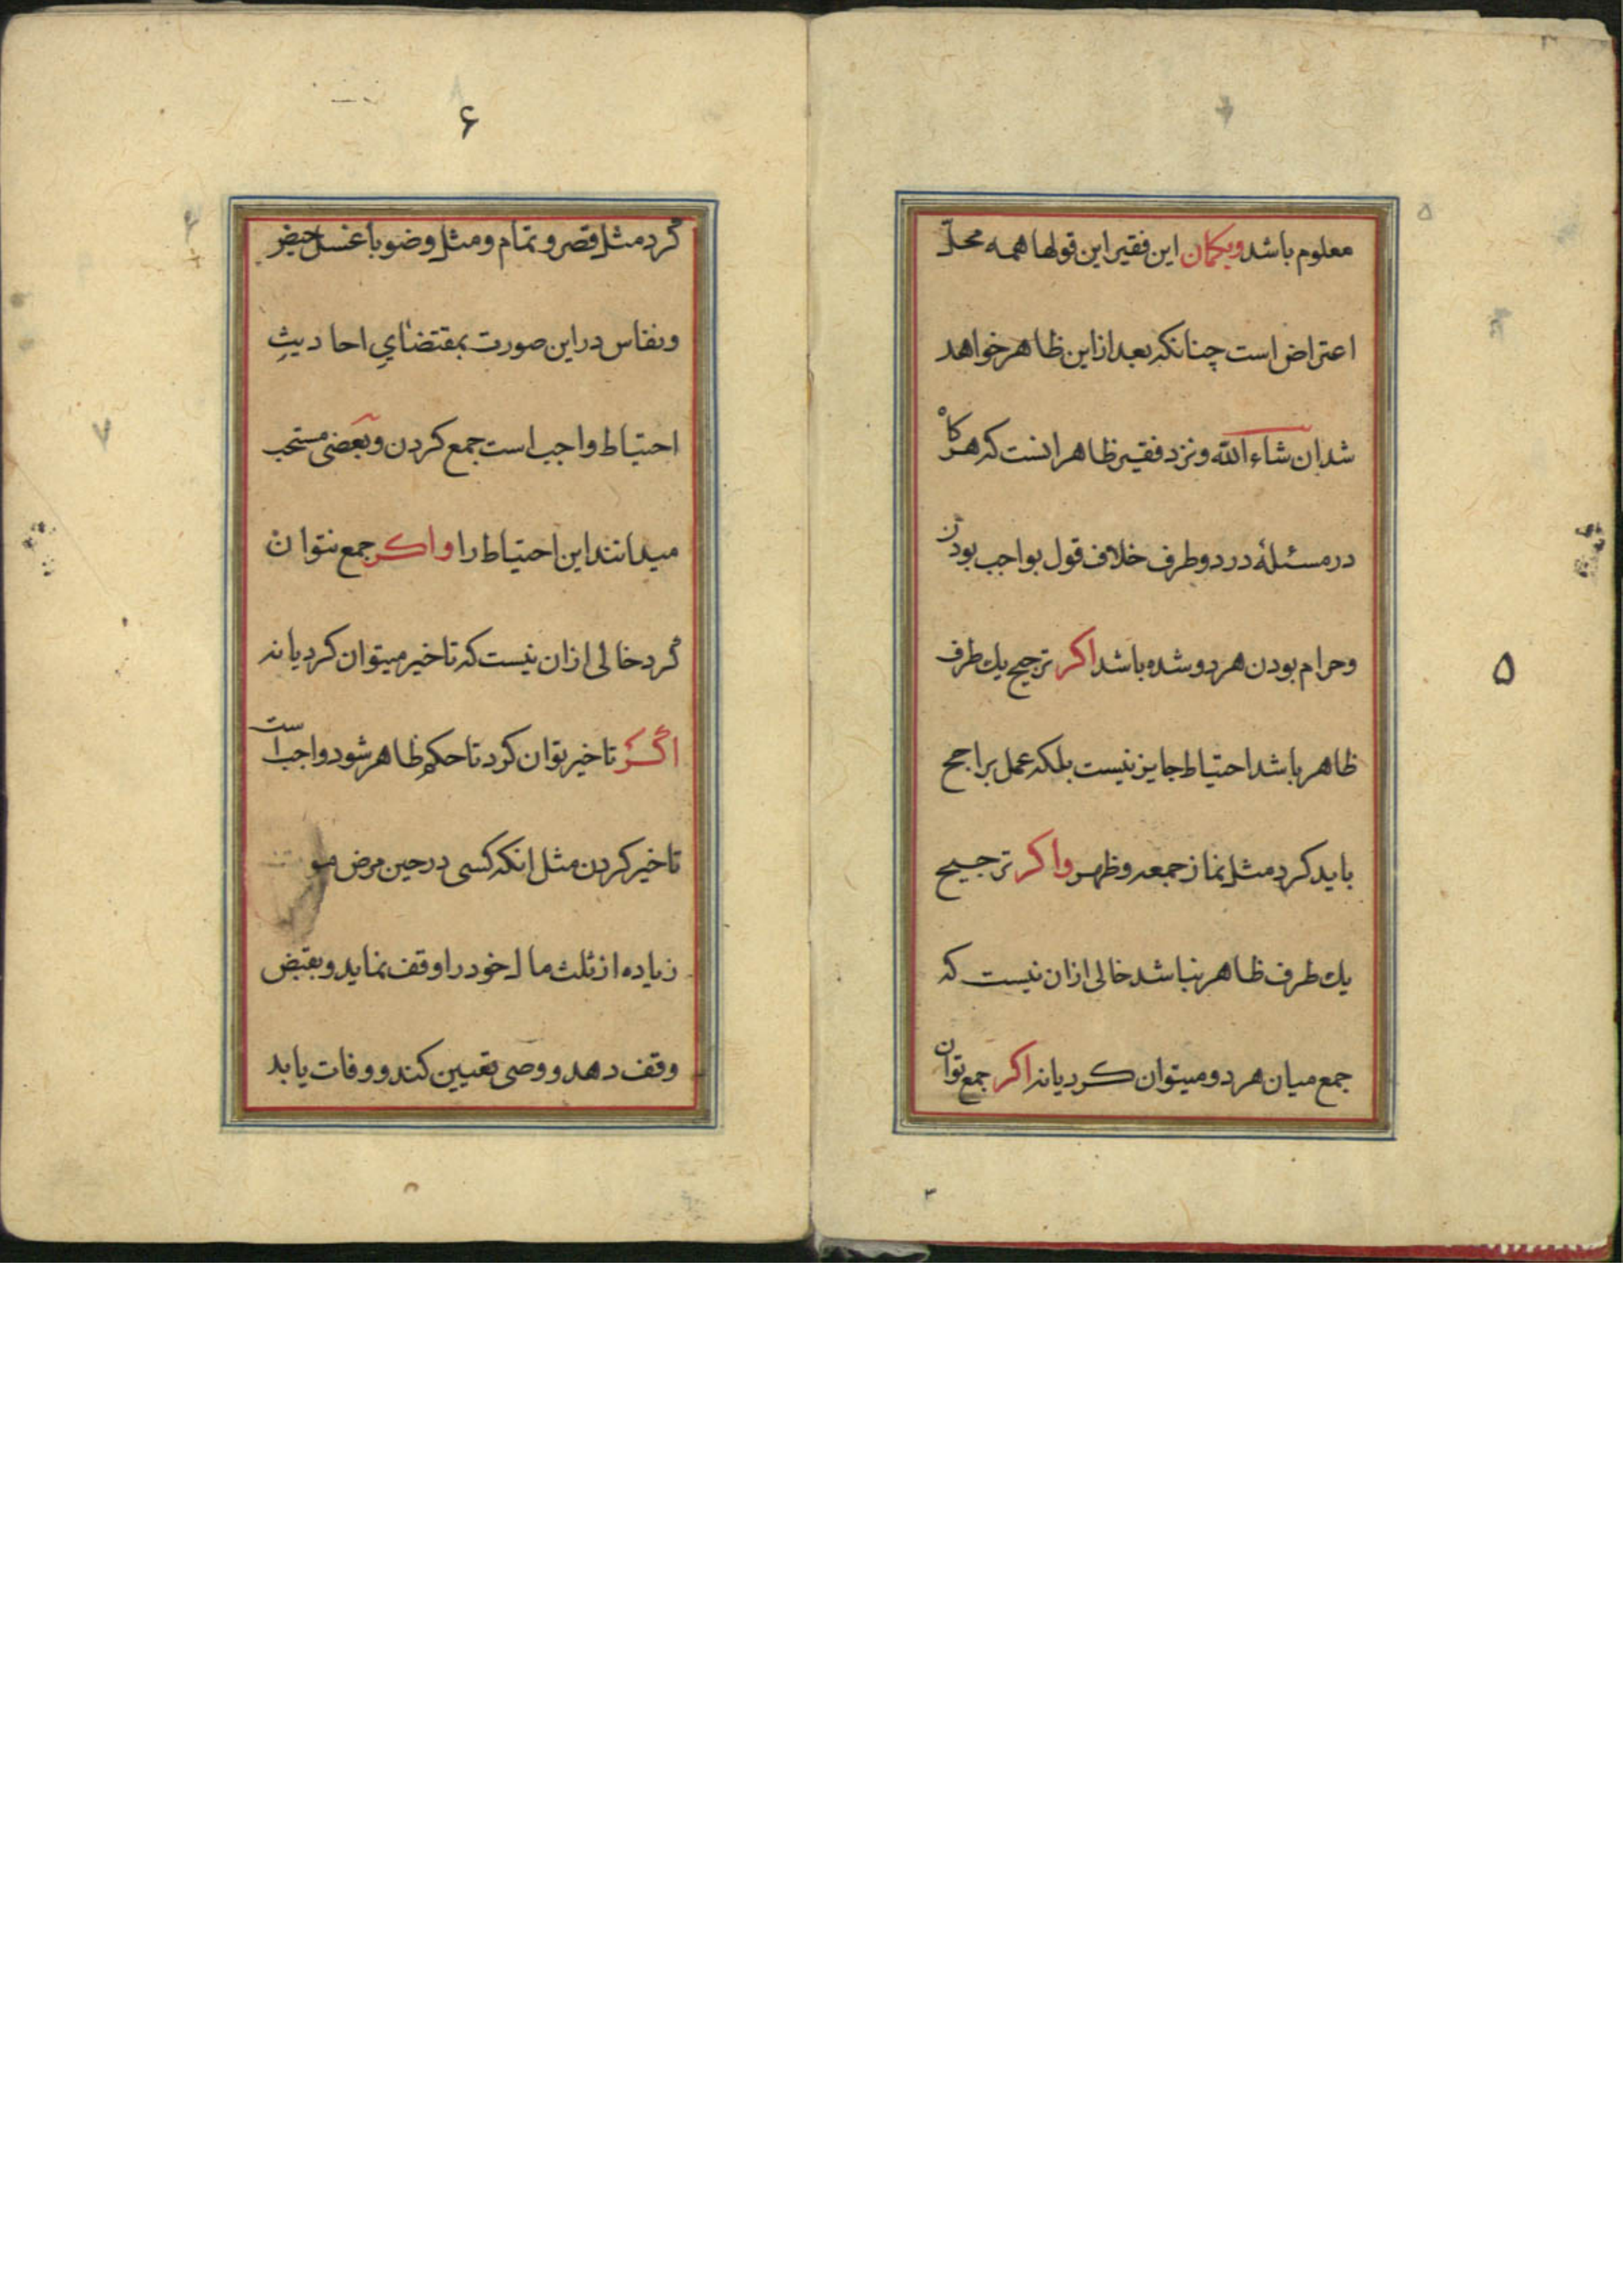 ۵
معلوم باشد وبكمان اين فقير اين قولها همه محلّ
اعتراض است چنانكه بعد از اين ظاهر خواهد
شد ان شاء الله ونزد فقير ظاهر انست كه هر كاه
در مسئلهٔ در دو طرف خلاف قول بواجب بودن
وحرام بودن هر دو شده باشد اكر ترجيح يك طرف
ظاهر باشد احتياط جايز نيست بلكه عمل براجح
بايد كرد مثل نماز جمعه وظهر واكر ترجيح
يك طرف ظاهر نباشد خالى ازان نيست كه
جمع ميان هر دو ميتوان كرد يا نه اكر جمع توان
۵
۶
كرد مثل قصر و تمام ومثل وضو با غسل حيض
ونفاس در اين صورت بمقتضاي احاديثِ
احتياط واجب است جمع كردن وبعضى مستحب
ميدانند اين احتياط را واكر جمع نتوان
كرد خالى ازان نيست كه تاخير ميتوان كرد يا نه
اگر تاخير توان كرد تا حكم ظاهر شود واجب است
تاخير كردن مثل انكه كسى در حين مرض موت
زياده از ثلث مال خود را وقف نمايد وبقبض
وقف دهد و وصى تعيين كند و وفات يابد
۷